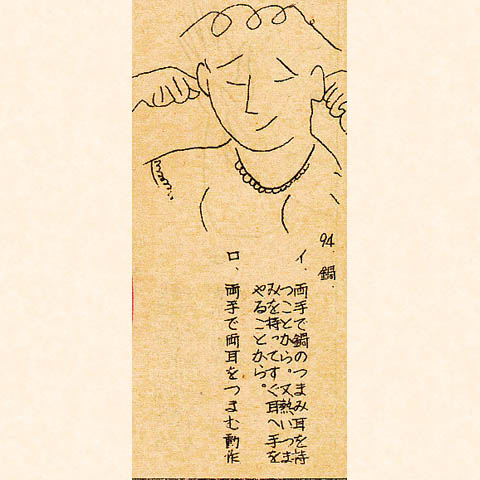 94. 鍋.
イ、両手で鍋のつまみ耳を持
つことから。又熱いつま
みを持ってすぐ耳へ手を
やることから。
ロ、両手で両耳をつまむ動作